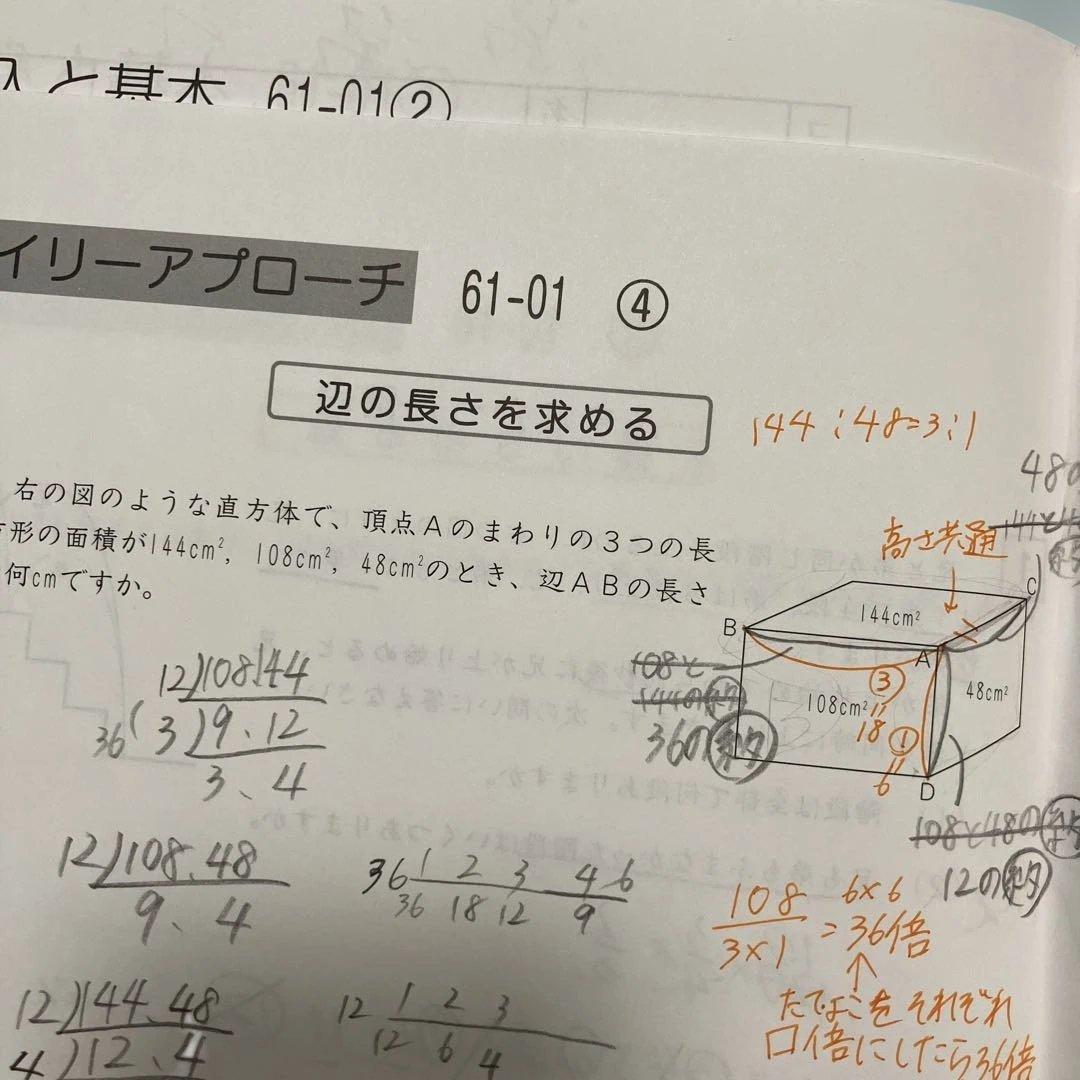 と基本 61-01②
イリーアプローチ 61-01 ④
辺の長さを求める
144:48=3:1
右の図のような直方体で、頂点Aのまわりの3つの長
方形の面積が144cm², 108cm², 48cm²のとき、辺ABの長さ
何cmですか。
48の
144と4
約
高さ共通
B
C
A
D
144cm²
108cm²
48cm²
③
18
①
6
108と
144の約
36の約
108と48の約
12の約
12)108.144
36(3)9、12
3、4
12)108、48
9、4
36 1 2 3 4 6
36 18 12 9
12)144、48
4)12、4
12 1 2 3
12 6 4
108/3×1 = 36倍
6×6
たてよこをそれぞれ
□倍にしたら36倍